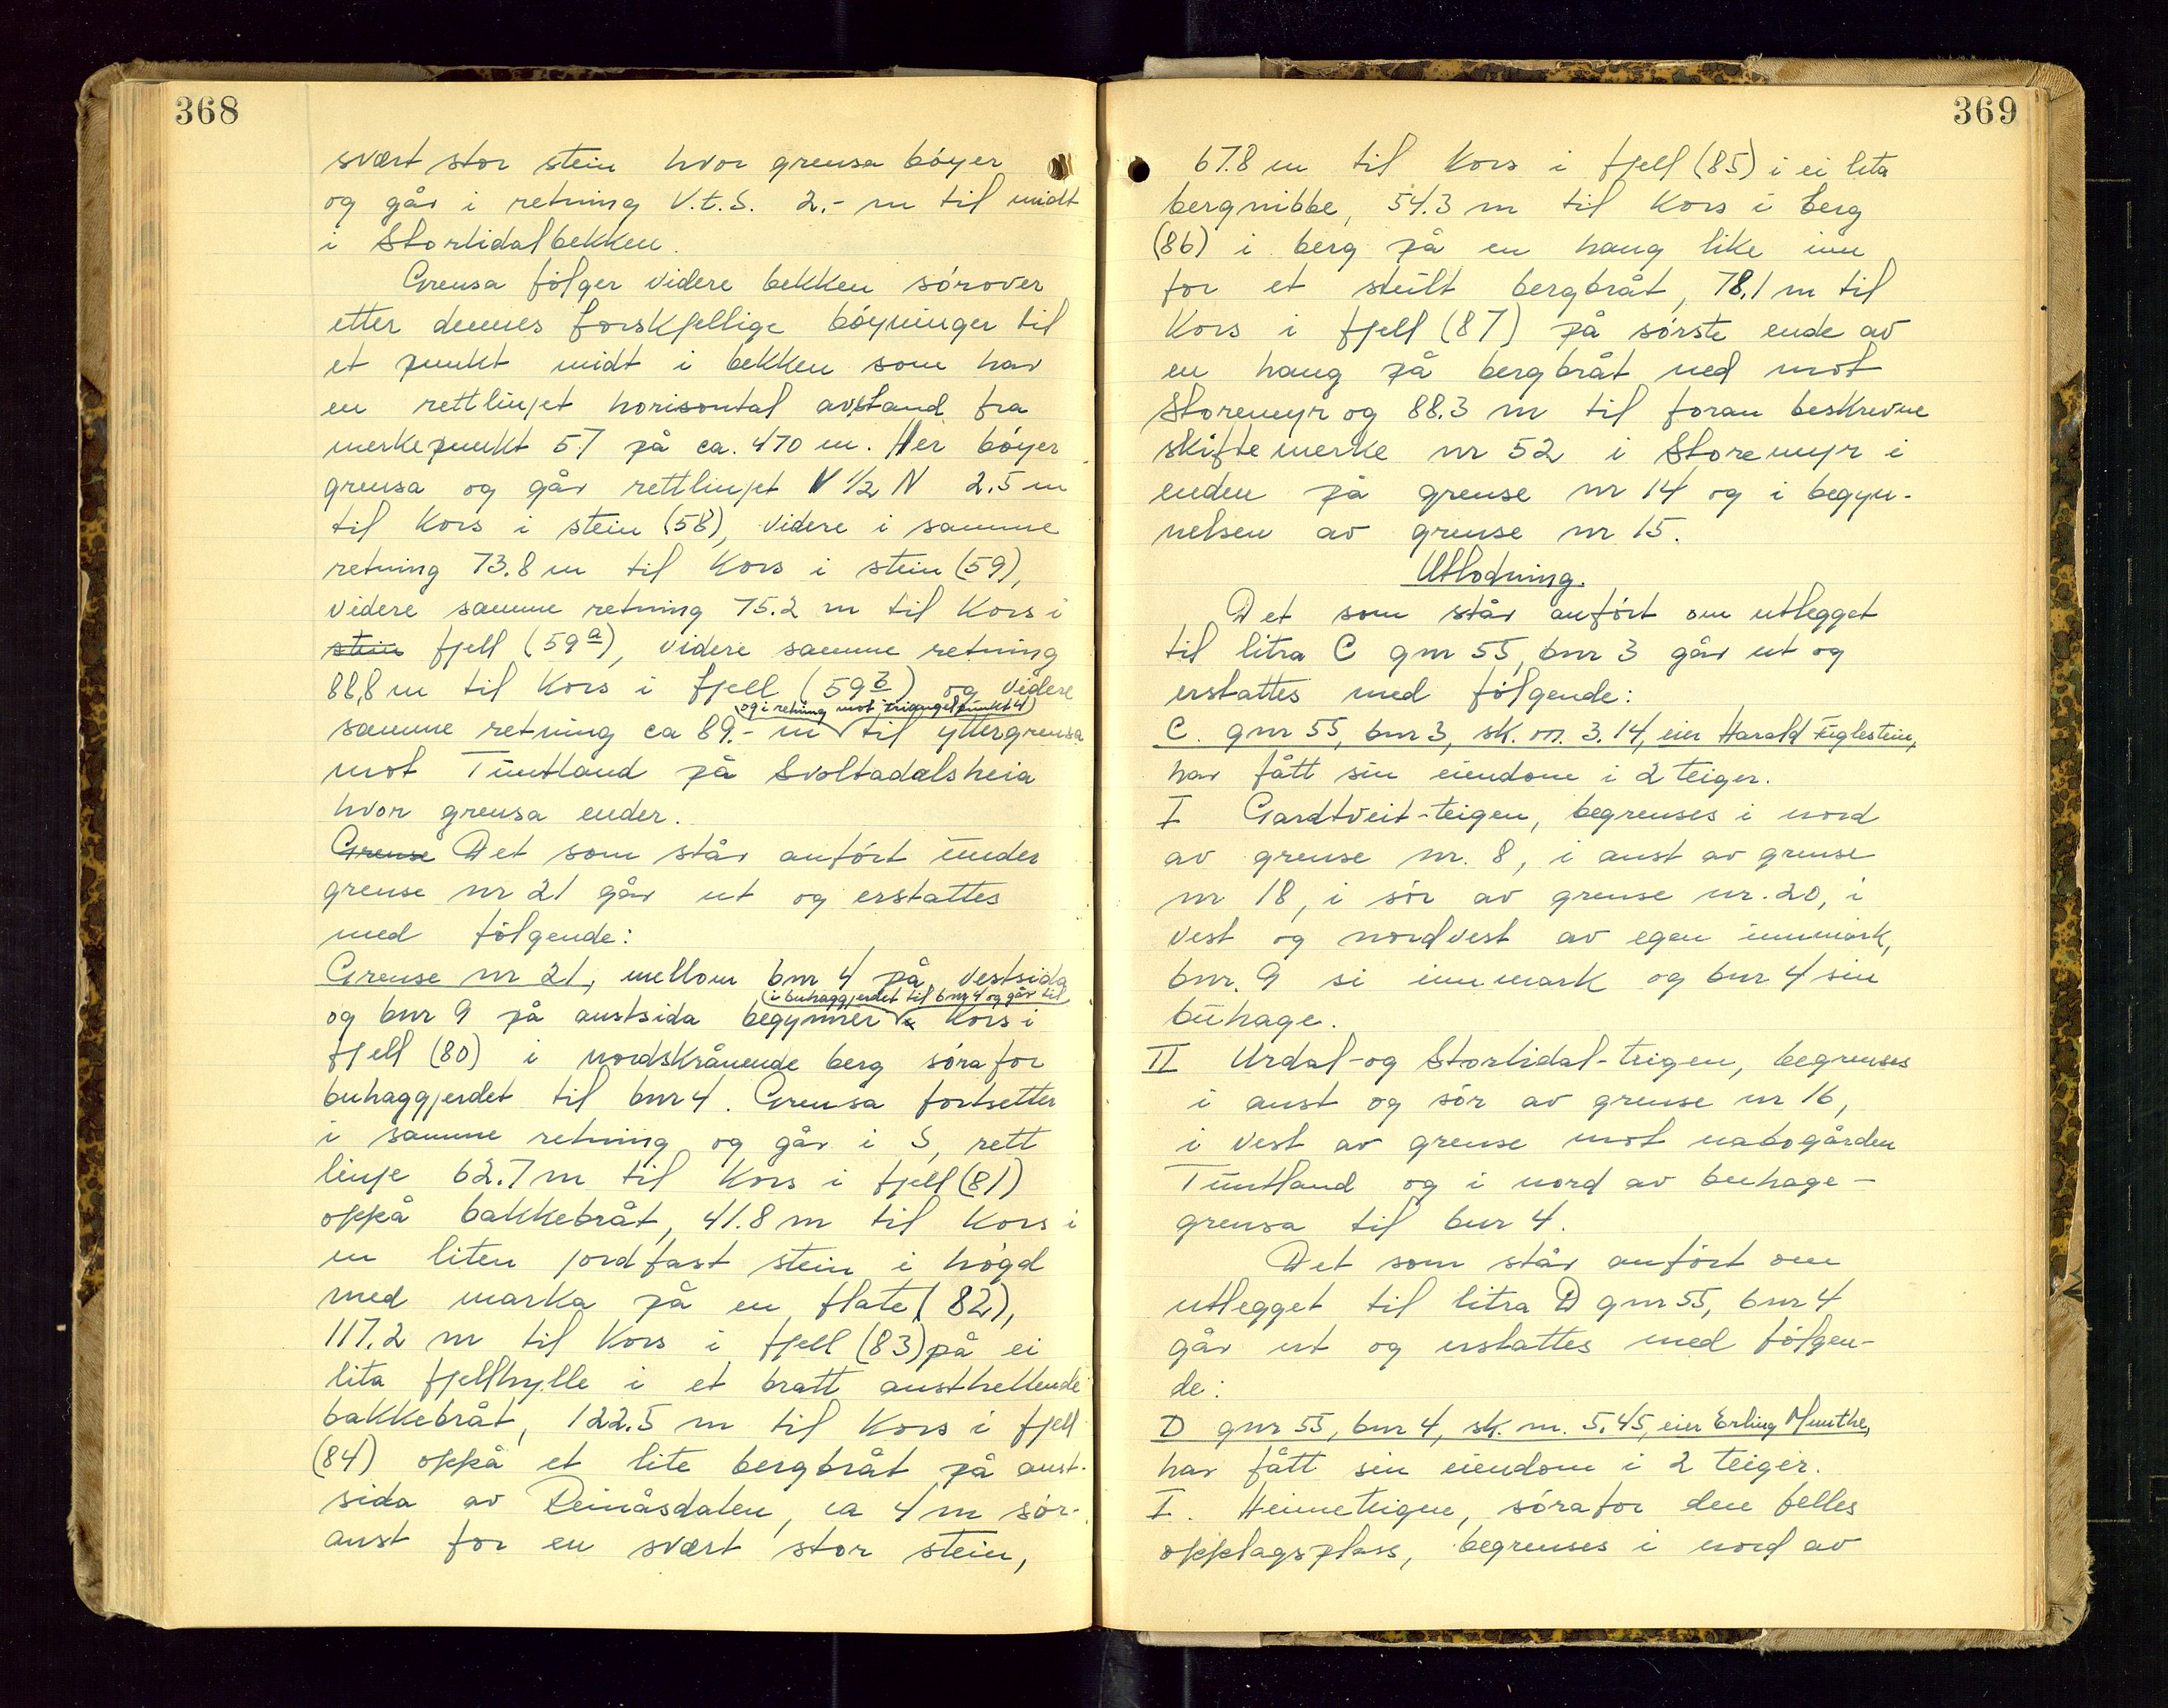 368
svært stor stein hvor grensa bóyer
og går i retning V.t.S. 2.- m til midt
i Storlidalbekken.
Grensa fólger videre bekken sórover
etter dennes forskjellige bóyninger til
et punkt midt i bekken som har
en rettlinjet horisontal avstand fra
merkepunkt 57 på ca. 470 m. Her bóyer
grensa og går rettlinjet V 1/2 N 2.5 m
til Kors i stein (58), videre i samme
retning 73.8 m til Kors i stein (59),
videre samme retning 75.2 m til Kors i
stein fjell (59a), videre samme retning
88,8 m til Kors i fjell (59b) og videre
(og i retning mot triangelpunkt 4)
samme retning ca 89.- m til yttergrensa
mot Tuntland på Svoltadalsheia
hvor grensa ender.
Grense Det som står anfórt under
grense nr 21 går ut og erstattes
med fólgende:
Grense nr 21, mellom bnr 4 på vestsida
(i buhaggjerdet til bnr 4 og går til
og bnr 9 på austsida begynner i Kors i
fjell (80) i nordskrånende berg sórafor
buhaggjerdet til bnr 4. Grensa fortsetter
i samme retning og går i S, rett
linje 62.7 m til Kors i fjell (81)
oppå bakkebråt, 41.8 m til Kors i
en liten jordfast stein i hógd
med marka på en flate (82),
117.2 m til Kors i fjell (83) på ei
lita fjellhylle i et bratt austhellende
bakkebråt, 122.5 m til Kors i fjell
(84) oppå et lite bergbråt på aust-
sida av Deinåsdalen, ca 4 m sór-
aust for en svært stor stein,
369
67.8 m til Kors i fjell (85) i ei lita
bergnibbe, 54.3 m til Kors i berg
(86) i berg på en haug like inn
for et steilt bergbråt, 78,1 m til
Kors i fjell (87) på sórste ende av
en haug på bergbråt ned mot
Storemyr og 88.3 m til foran beskrevne
skiftemerke nr 52 i Storemyr i
enden på grense nr 14 og i begyn-
nelsen av grense nr 15.
Utlodning.
Det som står anfórt om utlegget
til litra C gnr 55, bnr 3 går ut og
erstattes med fólgende:
C. gnr 55, bnr 3, sk. m. 3.14, eier Harald Fuglestein,
har fått sin eiendom i 2 teiger.
I Gardtveit-teigen, begrenses i nord
av grense nr. 8, i aust av grense
nr 18, i sór av grense nr. 20, i
vest og nordvest av egen innmark,
bnr. 9 si innmark og bnr 4 sin
buhage.
II Urdal- og Storlidal-teigen, begrenses
i aust og sór av grense nr 16,
i vest av grense mot nabogården
Tuntland og i nord av buhage-
grensa til bnr 4.
Det som står anfórt om
utlegget til litra D gnr 55, bnr 4
går ut og erstattes med fólgen-
de:
D gnr 55, bnr 4, sk. m. 5.45, eier Erling Munthe,
har fått sin eiendom i 2 teiger.
I. Heimeteigen, sórafor den felles
opplagsplass, begrenses i nord av